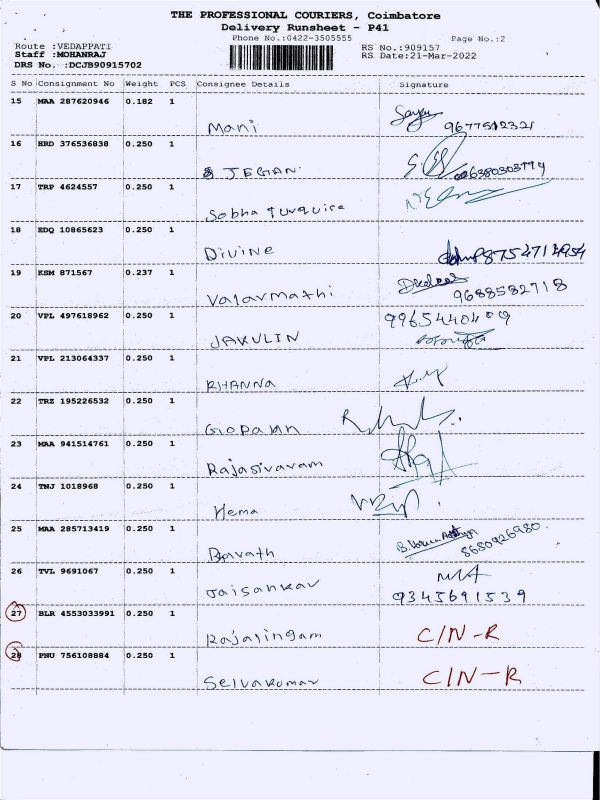 THE PROFESSIONAL COURIERS, Coimbatore
Delivery Runsheet - P41
Phone No.:0422-3505555 Page No.:2
Route :VEDAPPATI RS No.:909157
Staff :MOHANRAJ RS Date:21-Mar-2022
DRS No. :DCJB90915702
S No Consignment No Weight PCS Consignee Details Signature
15 MAA 287620946 0.182 1
Mani
16 HRD 376536838 0.250 1
JEGAN.
17 TRP 4624557 0.250 1
Sobha Turquise
18 EDQ 10865623 0.250 1
Divine 8754714954
19 KSM 871567 0.237 1
Valarmathi 9688582718
20 VPL 497618962 0.250 1 9965440409
JAKULIN
21 VPL 213064337 0.250 1
KHANNA
22 TRZ 195226532 0.250 1
Gopalan
23 MAA 941514761 0.250 1
Rajasivaram
24 TNJ 1018968 0.250 1
Hema
25 MAA 285713419 0.250 1
Bharath 8680926980.
26 TVL 9691067 0.250 1
Jaisankar 9345691539
27 BLR 4553033991 0.250 1
Rajalingam C/N-R
28 PNU 756108884 0.250 1
Selvakumar C/N-R